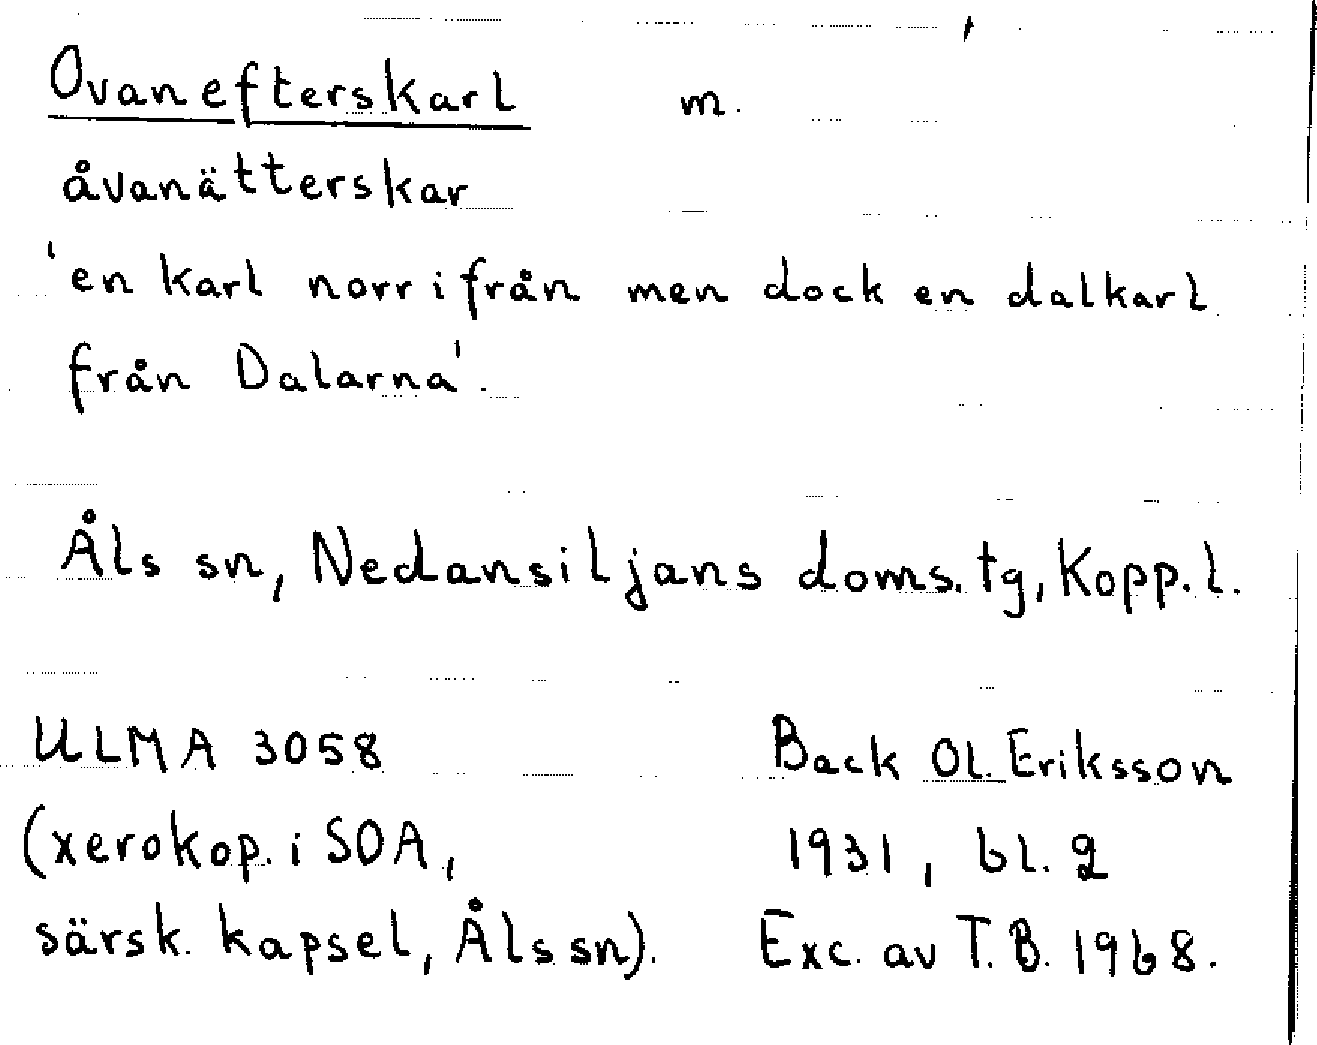 Ovanefterskarl m.
åvanätterskar
'en karl norrifrån men dock en dalkarl
från Dalarna'.
Åls sn, Nedansiljans doms. tg, Kopp. l.
ULMA 3058 Back Ol. Eriksson
(xerokop. i SOA, 1931, bl. 2
särsk. kapsel, Åls sn). Exc. av T. B. 1968.